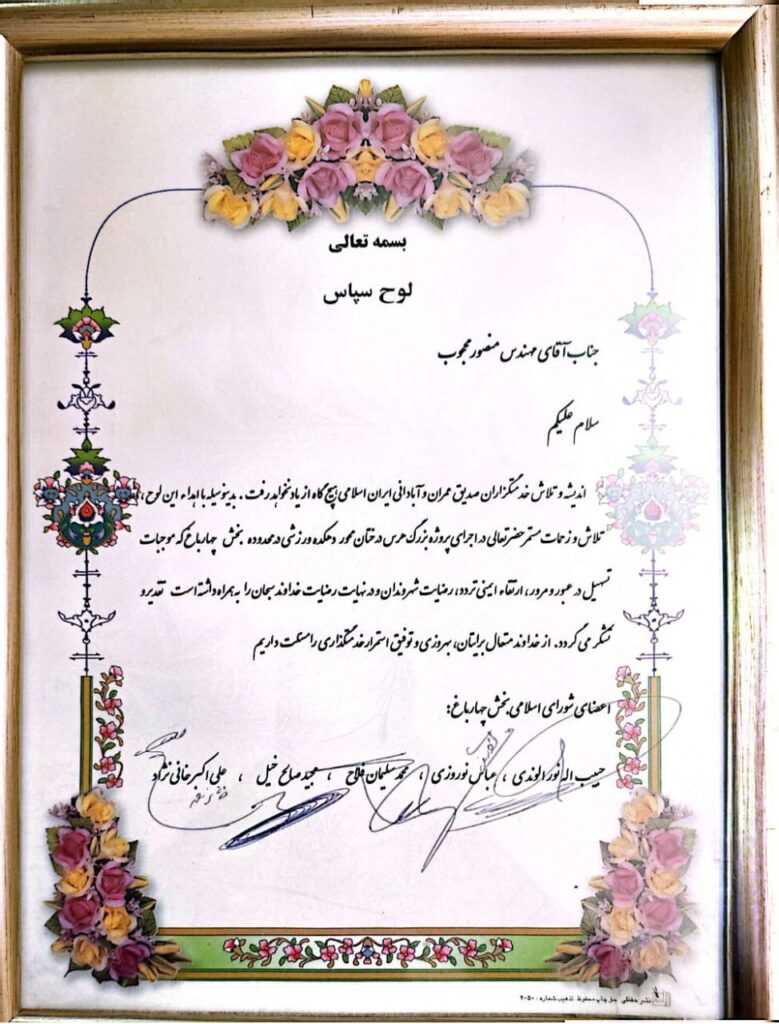 بسمه تعالی
لوح سپاس
جناب آقای مهندس منصور محبوب
سلام علیکم
اندیشه و تلاش خدمتگزاران صدیق عمران و آبادانی ایران اسلامی هیچ گاه از یاد نخواهد رفت . بدینوسیله با اهداء این لوح ،
تلاش و زحمات مستمر حضرتعالی در اجرای پروژه بزرگ هرس درختان محور دهکده ورزشی در محدوده بخش چهارباغ که موجبات
تسهیل در عبور و مرور ، ارتقاء ایمنی تردد، رضایت شهروندان و در نهایت رضایت خداوند سبحان را به همراه داشته است تقدیر و
تشکر می گردد. از خداوند متعال برایتان، بهروزی و توفیق استمرار خدمتگزاری را مسئلت داریم
اعضای شورای اسلامی بخش چهارباغ:
حبیب اله نورالوندی ، عباس نوروزی ، محمد سلیمان فلاح ، مجید صالح خیل ، علی اکبر خانی نژاد
نشر حفظی حق چاپ محفوظ تذهیب شماره : ۲۰۵۰